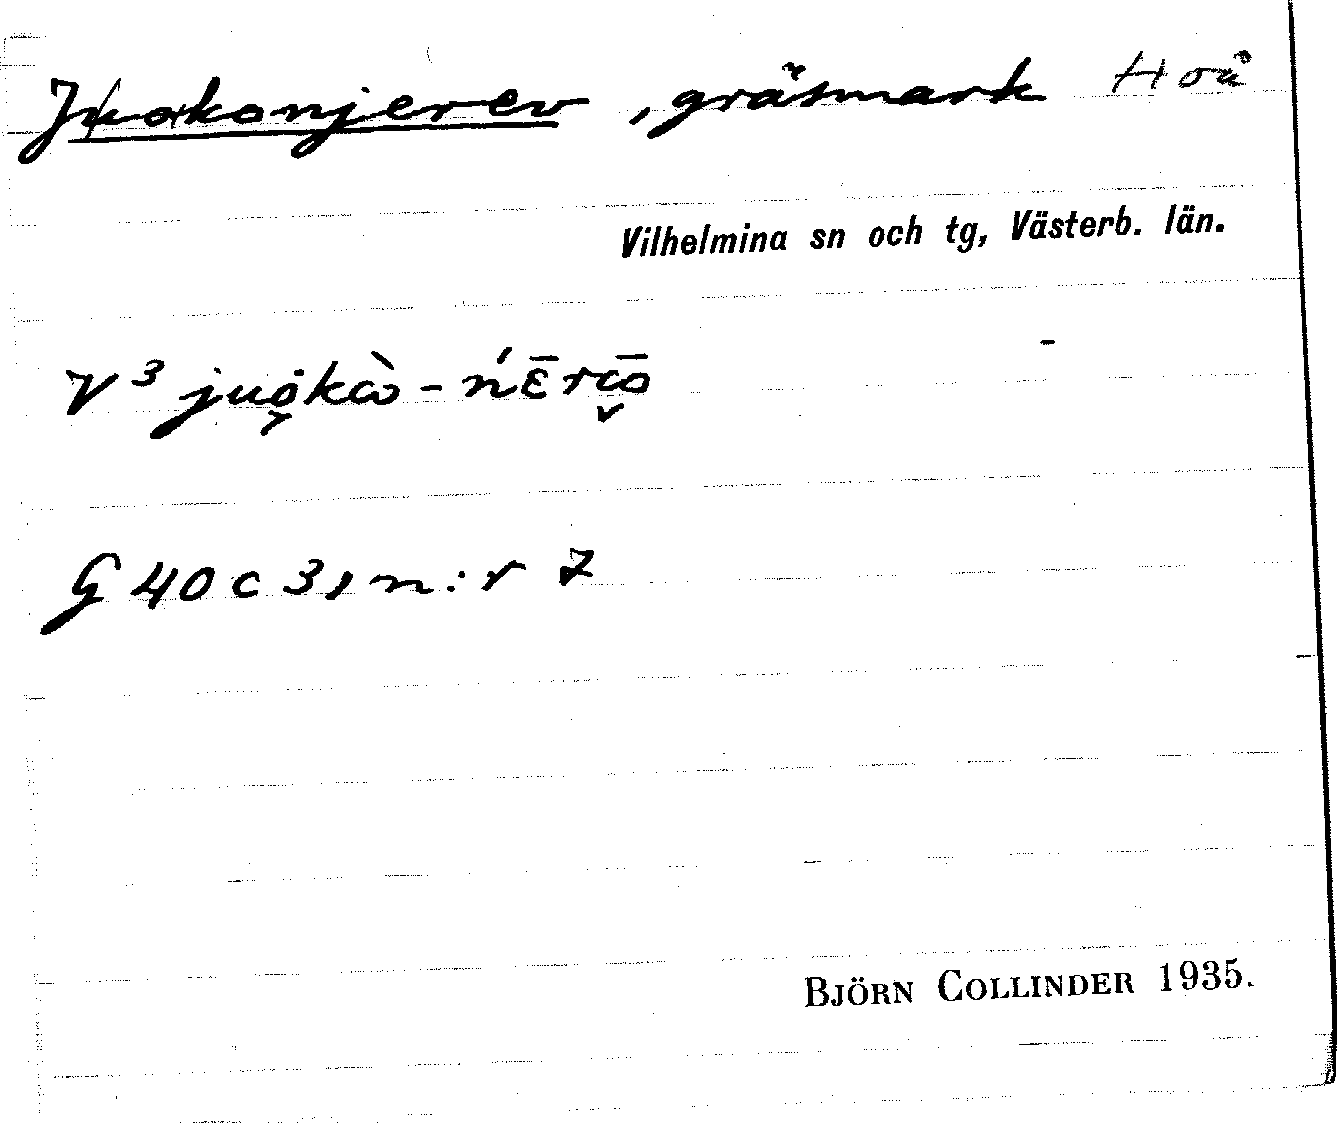 Juokonjerev, gräsmark Hoå
Vilhelmina sn och tg, Västerb. län.
V³ juȯ̯kɑ̀ - ńε̄rɷ̬̄
G 40 c 3, n:r 7
BJÖRN COLLINDER 1935.